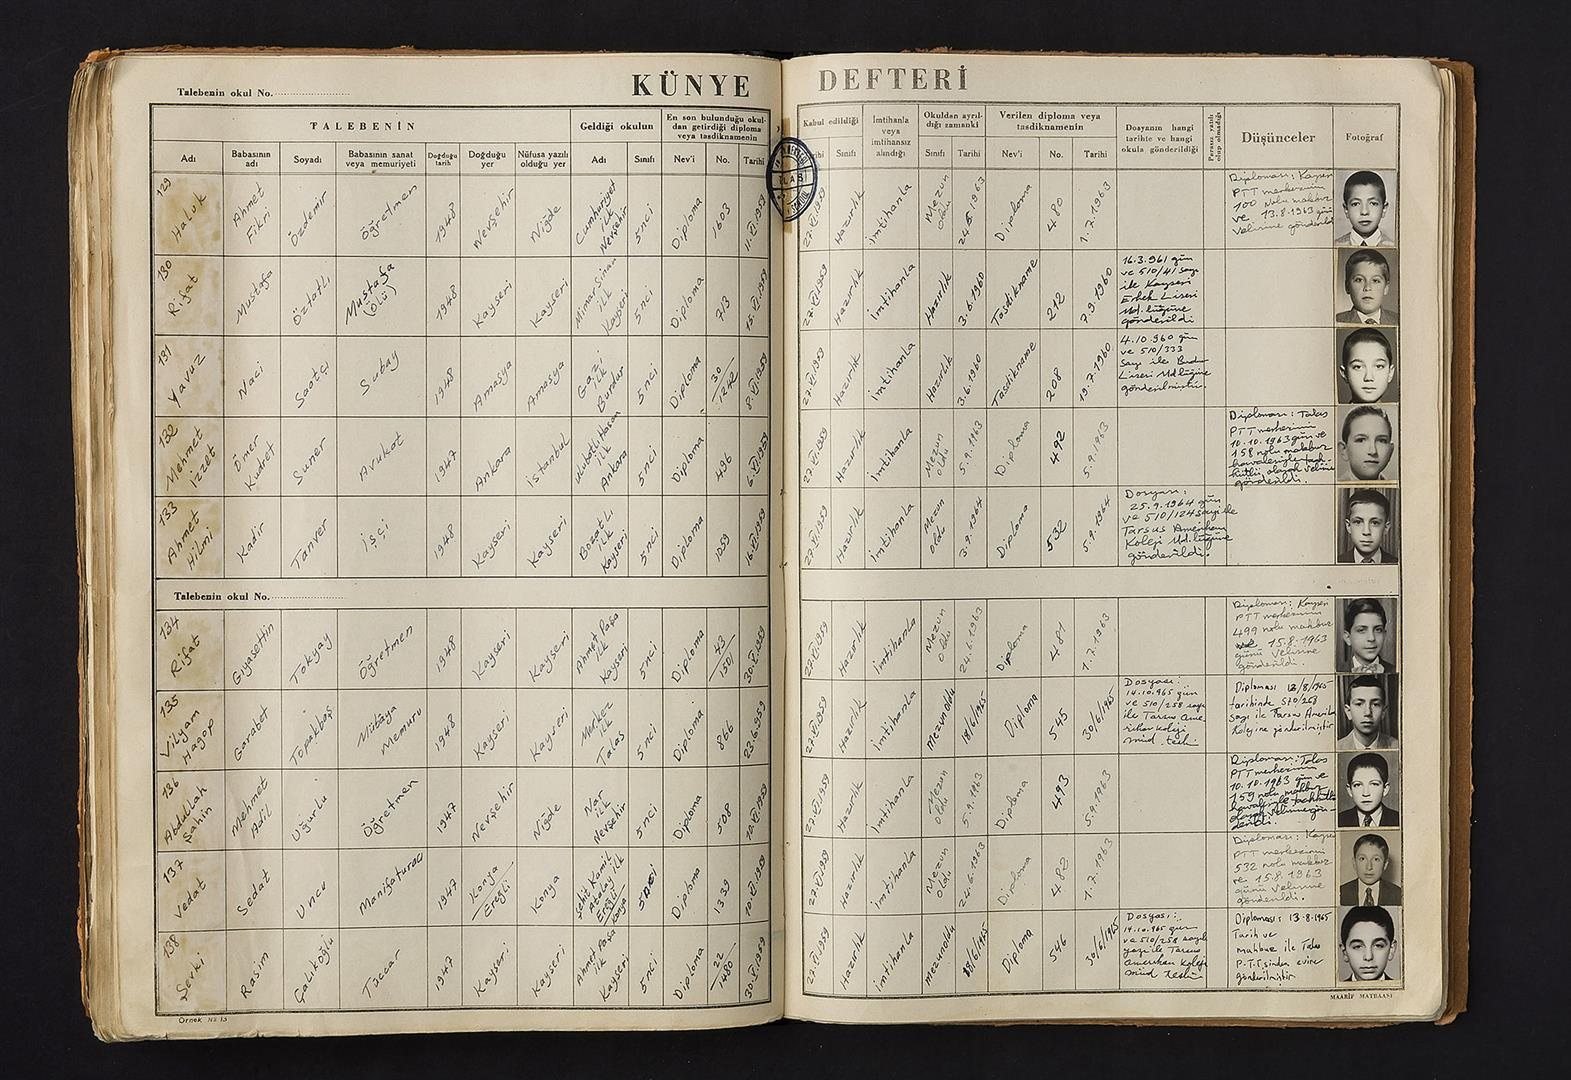 KÜNYE DEFTERİ
Talebenin okul No.
TALEBENİN
Geldiği okulun
En son bulunduğu okul-
dan getirdiği diploma
veya tasdiknamenin
Kabul edildiği
İmtihanla
veya
imtihansız
alındığı
Okuldan ayrıl-
dığı zamanki
Verilen diploma veya
tasdiknamenin
Dosyanın hangi
tarihte ve hangi
okula gönderildiği
Düşünceler
Fotoğraf
Adı
Babasının
adı
Soyadı
Babasının sanat
veya memuriyeti
Doğduğu
tarih
Doğduğu
yer
Nüfusa yazılı
olduğu yer
Adı
Sınıfı
Nev'i
No.
Tarihi
Sınıfı
Sınıfı
Tarihi
Nev'i
No.
Tarihi
129 Haluk
Ahmet Fikri
Özdemir
Öğretmen
1948
Nevşehir
Niğde
Cumhuriyet İlk Nevşehir
5nci
Diploma
1603
11.VI.1959
27.VI.1959
Hazırlık
İmtihanla
Mezun oldu
24.6.1963
Diploma
480
1.7.1963
Diploması: Kayseri
PTT merkezinin
100 nolu makbuz
ve 13.8.1963 günü
velisine gönderildi
130 Rifat
Mustafa
Öztatlı
Mustafa (Ölü)
1948
Kayseri
Kayseri
Mimar Sinan İlk Kayseri
5nci
Diploma
713
15.VI.1959
27.VI.1959
Hazırlık
İmtihanla
Hazırlık
3.6.1960
Tasdikname
212
7.9.1960
16.3.961 gün
ve 510/41 sayı
ile Kayseri
Erkek Lisesi
Md.lüğüne
gönderildi
131 Yavuz
Naci
Saatçı
Subay
1948
Amasya
Amasya
Gazi İlk Burdur
5nci
Diploma
30/1242
8.VI.1959
27.VI.1959
Hazırlık
İmtihanla
Hazırlık
3.6.1960
Tasdikname
208
19.7.1960
4.10.960 gün
ve 510/333
sayı ile Burdur
Lisesi Md.lüğüne
gönderilmiştir.
132 Mehmet İzzet
Ömer Kudret
Suner
Avukat
1947
Ankara
İstanbul
Ulubatlı Hasan İlk Ankara
5nci
Diploma
496
6.VI.1959
27.VI.1959
Hazırlık
İmtihanla
Mezun oldu
5.9.1963
Diploma
492
5.9.1963
Diploması: Talas
PTT merkezinin
10.10.1963 gün ve
158 nolu makbuz
gönderildi.
133 Ahmet Hilmi
Kadir
Tanver
İşçi
1948
Kayseri
Kayseri
Bozatlı İlk Kayseri
5nci
Diploma
1059
16.VI.1959
27.VI.1959
Hazırlık
İmtihanla
Mezun oldu
3.9.1964
Diploma
532
5.9.1964
Dosyası:
25.9.1964 gün
ve 510/124 sayı ile
Tarsus Amerikan
Koleji Md.lüğüne
gönderildi.
Talebenin okul No.
134 Rifat
Gıyasettin
Tokyay
Öğretmen
1948
Kayseri
Kayseri
Ahmet Paşa İlk Kayseri
5nci
Diploma
43/1501
30.VI.1959
27.VI.1959
Hazırlık
İmtihanla
Mezun oldu
24.6.1963
Diploma
481
1.7.1963
Diploması: Kayseri
PTT merkezinin
499 nolu makbuz
ve 15.8.1963
günü velisine
gönderildi.
135 Vilyam Hagop
Garabet
Topakbaş
Mübaya Memuru
1948
Kayseri
Kayseri
Merkez Talas
5nci
Diploma
866
23.6.959
27.VI.1959
Hazırlık
İmtihanla
Mezun oldu
18/6/1965
Diploma
545
30/6/1965
Dosyası:
14.10.965 gün
ve 510/258 sayı
ile Tarsus Ame-
rikan Koleji
Diploması 12/8/1965
tarihinde 510/258
sayı ile Tarsus Amerikan
Kolejine gönderilmiştir
136 Abdullah Şahin
Mehmet Adil
Uğurlu
Öğretmen
1947
Nevşehir
Niğde
Nar İlk Nevşehir
5nci
Diploma
508
10.VI.1959
27.VI.1959
Hazırlık
İmtihanla
Mezun oldu
5.9.1963
Diploma
493
5.9.1963
Diploması: Talas
PTT merkezinin
10.10.1963 gün ve
159 nolu makbuz
137 Vedat
Sedat
Uncu
Manifaturacı
1947
Konya Ereğli
Konya
Şehit Kamil Atalay İlk Ereğli Konya
5nci
Diploma
1339
10.VI.1959
27.VI.1959
Hazırlık
İmtihanla
Mezun oldu
24.6.1963
Diploma
482
1.7.1963
Diploması: Kayseri
PTT merkezinin
532 nolu makbuz
ve 15.8.1963
günü velisine
gönderildi.
138 Şevki
Rasim
Çalıkoğlu
Tüccar
1947
Kayseri
Kayseri
Ahmet Paşa İlk Kayseri
5nci
Diploma
22/1480
30.VI.1959
27.VI.1959
Hazırlık
İmtihanla
Mezun oldu
18/6/1965
Diploma
546
30/6/1965
Dosyası:
14.10.965 gün
ve 510/258 sayılı
yazı ile Tarsus
Amerikan Koleji
Diploması: 13.8.1965
Tarih ve
makbuz ile Talas
P.T.T.sinden evine
gönderilmiştir
Örnek No 13
MAARİF MATBAASI